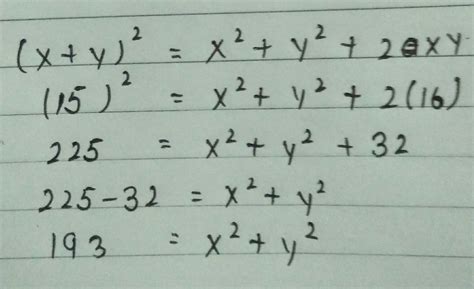 (x+y)² = x² + y² + 2xy
(15)² = x² + y² + 2(16)
225 = x² + y² + 32
225-32 = x² + y²
193 = x² + y²